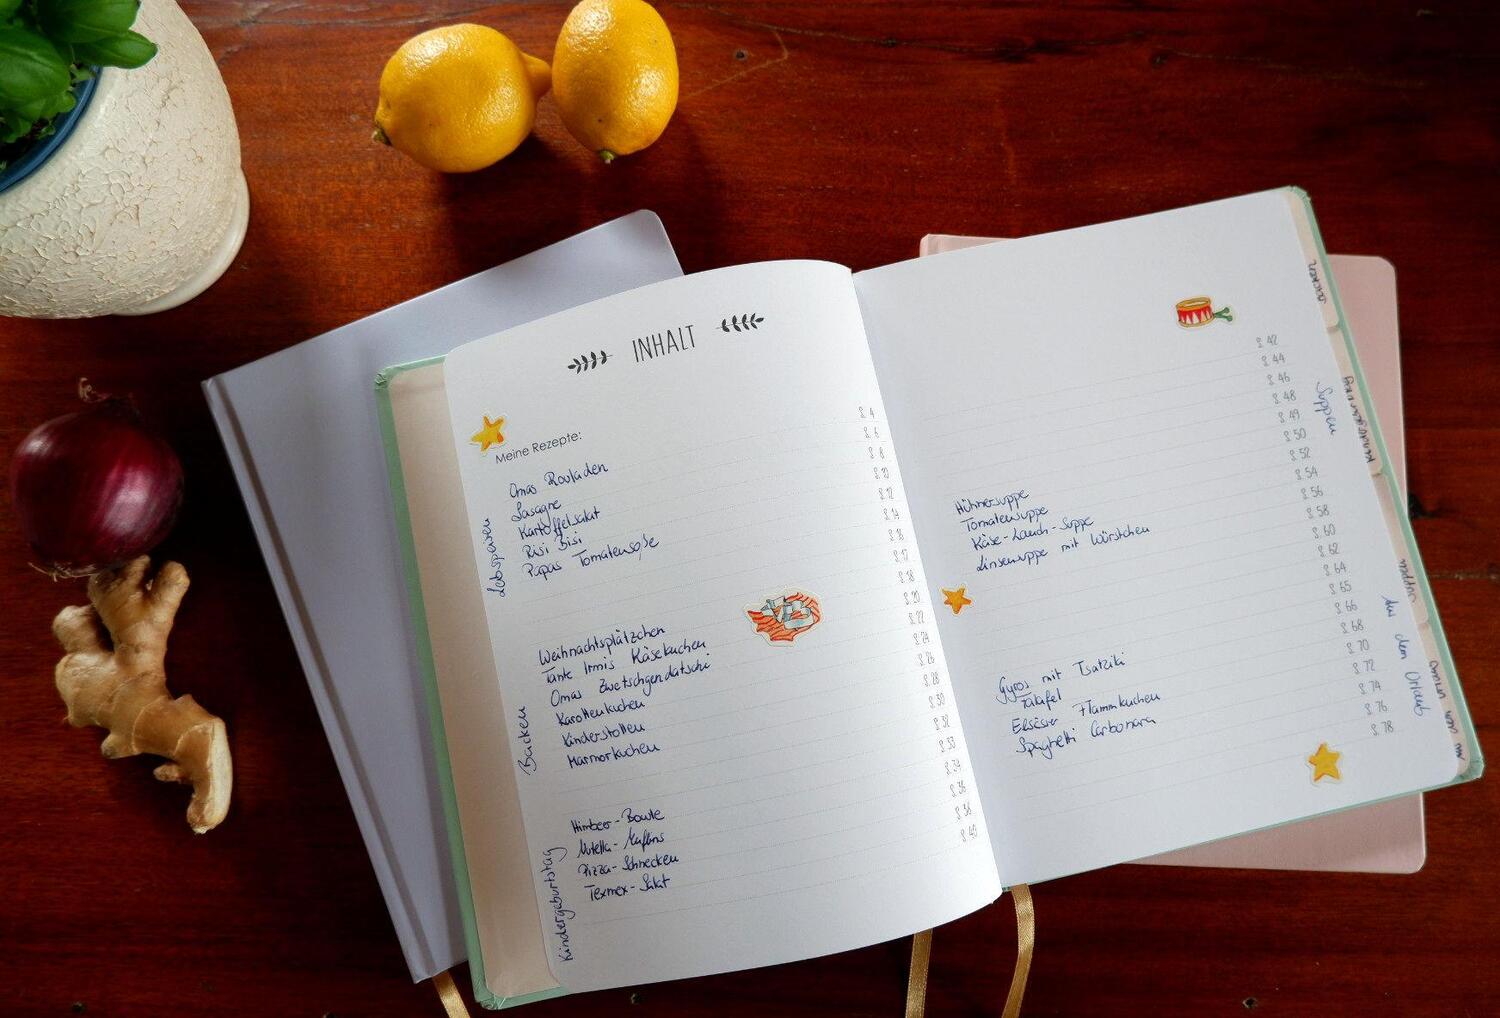 INHALT
Meine Rezepte:
Leibspeisen
Omas Rouladen
Lasagne
Kartoffelsalat
Risi Bisi
Papas Tomatensoße
Backen
Weihnachtsplätzchen
Tante Irmis Käsekuchen
Omas Zwetschgendatschi
Karottenkuchen
Kinderstollen
Marmorkuchen
Kindergeburtstag
Himbeer-Bowle
Nutella-Muffins
Pizza-Schnecken
Texmex-Salat
S. 4
S. 6
S. 8
S. 10
S. 12
S. 14
S. 16
S. 17
S. 18
S. 20
S. 22
S. 24
S. 26
S. 28
S. 30
S. 32
S. 33
S. 34
S. 36
S. 38
S. 40
Suppen
Hühnersuppe
Tomatensuppe
Käse-Lauch-Suppe
Linsensuppe mit Würstchen
Aus dem Urlaub
Gyros mit Tsatziki
Falafel
Elsässer Flammkuchen
Spaghetti Carbonara
S. 42
S. 44
S. 46
S. 48
S. 49
S. 50
S. 52
S. 54
S. 56
S. 58
S. 60
S. 62
S. 64
S. 65
S. 66
S. 68
S. 70
S. 72
S. 74
S. 76
S. 78
Backen
Kindergeburtstag
Suppen